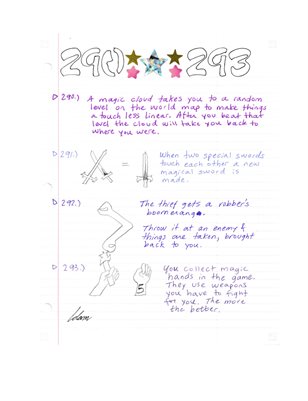 290 293
290.) A magic cloud takes you to a random
level on the world map to make things
a touch less linear. After you beat that
level the cloud will take you back to
where you were.
291.) = When two special swords
touch each other a new
magical sword is
made.
292.) The thief gets a robber's
boomerang.
Throw it at an enemy &
things are taken, brought
back to you.
293.) You collect magic
hands in the game.
They use weapons
you have to fight
for you. The more
the better.
5